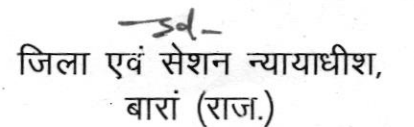 -sd-
जिला एवं सेशन न्यायाधीश,
बारां (राज.)